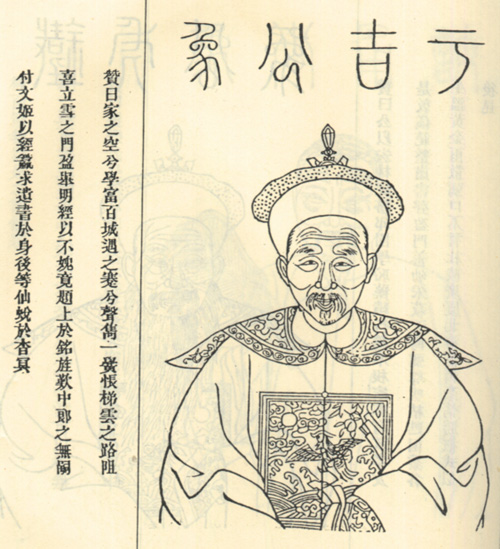 吉公象
贊曰家之空兮學富百城遇之蹇兮聲雋一黌悵梯雲之路阻
喜立雪之門盈舉明經以不媿竟題上於銘旌歎中郎之無嗣
付文姬以經籯求遺書於身後等仙蛻於杳冥